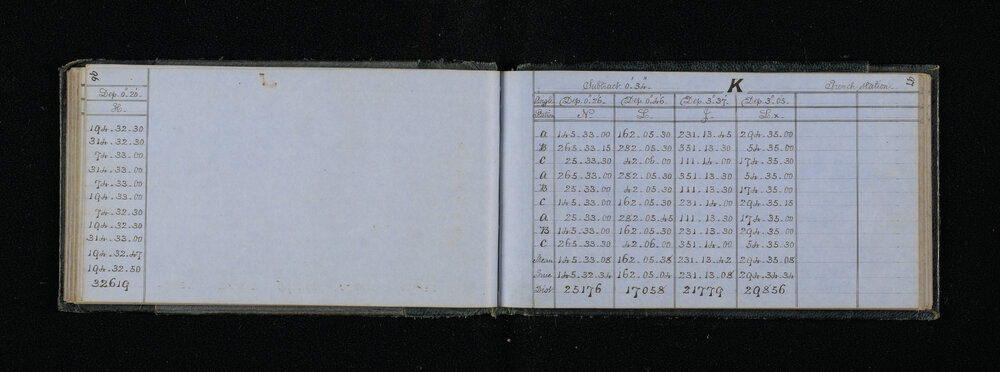 96
Dep. 0°.20'.
H.
194.32.30
314.32.30
74.33.00
314.33.00
74.33.00
194.33.00
74.32.30
194.32.30
314.33.00
194.32.47
194.32.50
32619
97
Subtract 0'.34". K Trench Station.
Angle Dep. 0°.26. Dep. 0°.46. Dep. 3°.37'. Dep. 3°.05.
Station N° L. J. L x
A 145.33.00 162.05.30 231.13.45 294.35.00
B 265.33.15 282.05.30 351.13.30 54.35.00
C 25.33.30 42.06.00 111.14.00 174.35.00
A 265.33.00 282.05.30 351.13.30 54.35.00
B 25.33.00 42.05.30 111.13.30 174.35.00
C 145.33.00 162.05.30 231.14.00 294.35.15
A 25.33.00 282.05.45 111.13.30 174.35.00
B 145.33.00 162.05.30 231.13.30 294.35.00
C 265.33.30 42.06.00 351.14.00 54.35.30
Mean 145.33.08 162.05.38 231.13.42 294.35.08
True 145.32.34 162.05.04 231.13.08 294.34.34
Dist 25176 17058 21779 29856